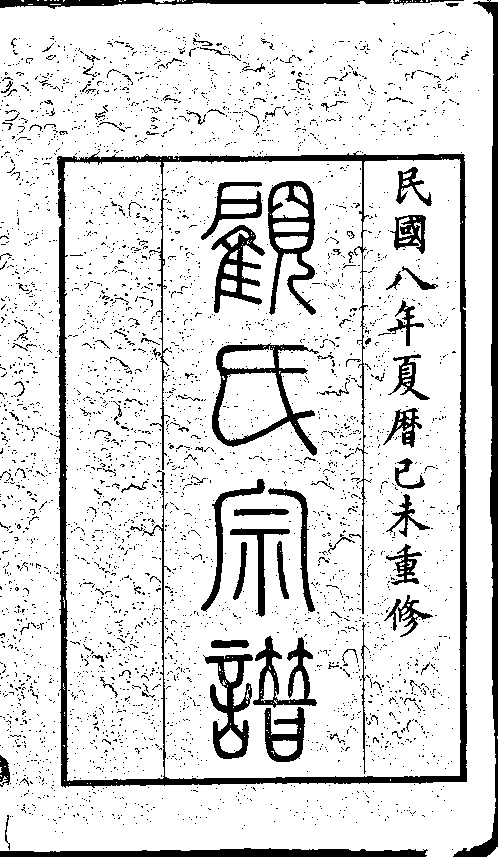 民國八年夏曆己未重修
顧氏宗譜